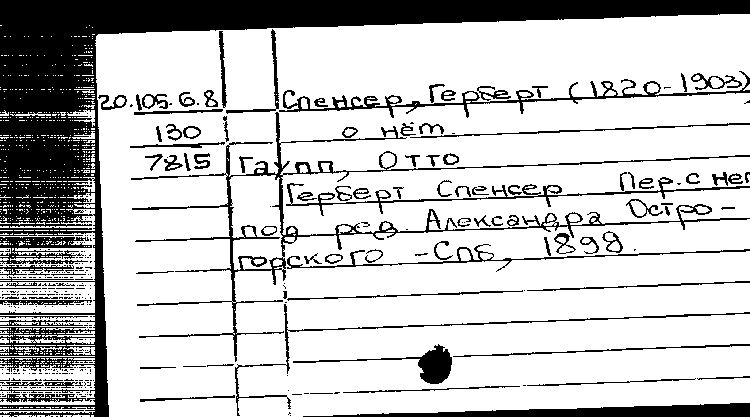 20.105.6.8 Спенсер, Герберт (1820-1903)
130 о нём
7815 Гаупп, Отто
Герберт Спенсер Пер. с нем
под ред Александра Остро-
горского - Спб, 1898.